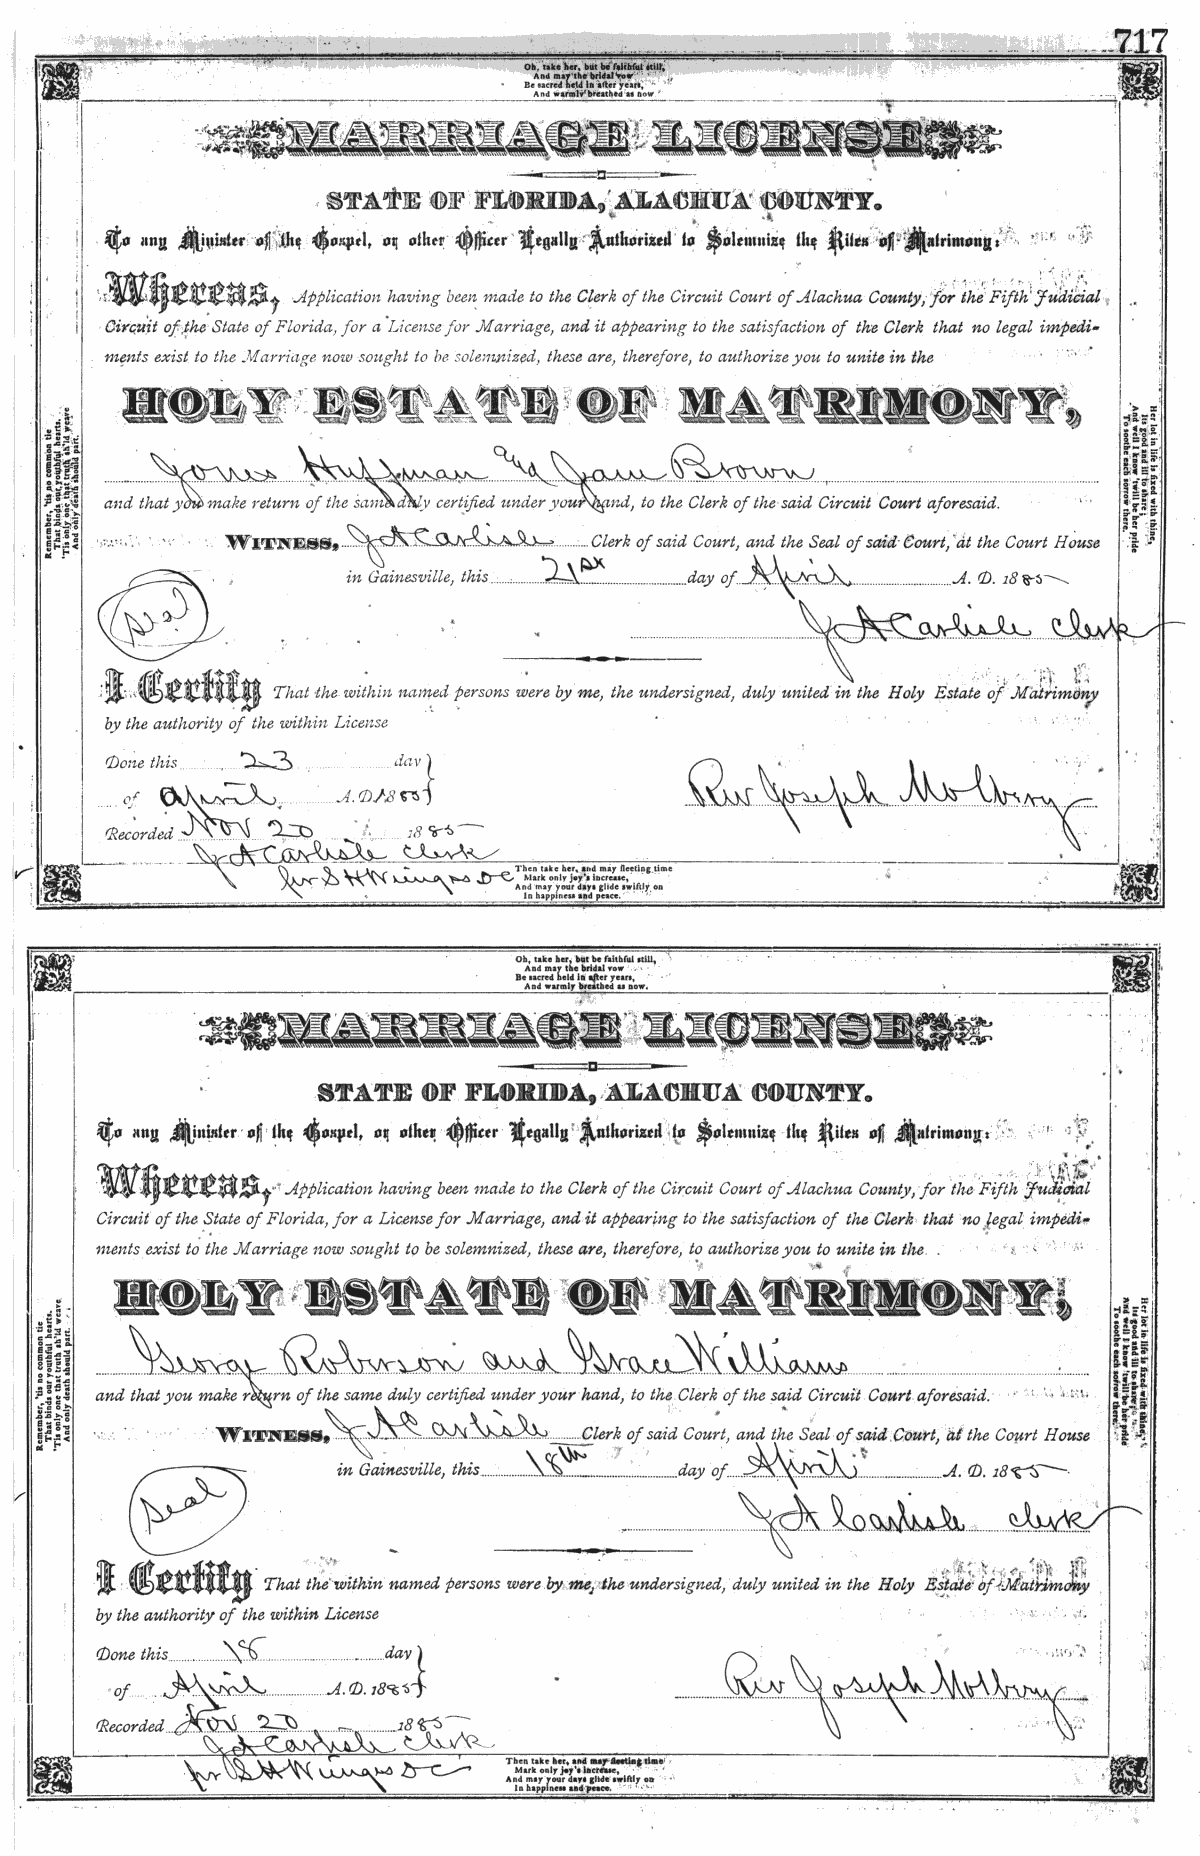 717
Oh, take her, but be faithful still,
And may the bridal vow
Be sacred held in after years,
And warmly breathed as now
MARRIAGE LICENSE
STATE OF FLORIDA, ALACHUA COUNTY.
To any Minister of the Gospel, or other Officer Legally Authorized to Solemnize the Rites of Matrimony:
Whereas, Application having been made to the Clerk of the Circuit Court of Alachua County, for the Fifth Judicial
Circuit of the State of Florida, for a License for Marriage, and it appearing to the satisfaction of the Clerk that no legal impedi-
ments exist to the Marriage now sought to be solemnized, these are, therefore, to authorize you to unite in the
HOLY ESTATE OF MATRIMONY,
Jones Huffman and Jane Brown
and that you make return of the same duly certified under your hand, to the Clerk of the said Circuit Court aforesaid.
WITNESS, J A Carlisle Clerk of said Court, and the Seal of said Court, at the Court House
in Gainesville, this 21st day of April A. D. 1885
Seal
J A Carlisle Clerk
I Certify That the within named persons were by me, the undersigned, duly united in the Holy Estate of Matrimony
by the authority of the within License
Done this 23 day
of April A. D. 1885
Rev Joseph
Recorded Nov 20 1885
J A Carlisle Clerk
per S H DC
Remember, 'tis no common tie
That binds our youthful hearts,
'Tis only one that truth sh'ld weave
And only death should part.
Her lot in life is fixed with thine,
Its good and ill to share;
And well I know 'twill be her pride
To soothe each sorrow there.
Then take her, and may fleeting time
Mark only joy's increase,
And may your days glide swiftly on
In happiness and peace.
Oh, take her, but be faithful still,
And may the bridal vow
Be sacred held in after years,
And warmly breathed as now.
MARRIAGE LICENSE
STATE OF FLORIDA, ALACHUA COUNTY.
To any Minister of the Gospel, or other Officer Legally Authorized to Solemnize the Rites of Matrimony:
Whereas, Application having been made to the Clerk of the Circuit Court of Alachua County, for the Fifth Judicial
Circuit of the State of Florida, for a License for Marriage, and it appearing to the satisfaction of the Clerk that no legal impedi-
ments exist to the Marriage now sought to be solemnized, these are, therefore, to authorize you to unite in the
HOLY ESTATE OF MATRIMONY,
George Roberson and Grace Williams
and that you make return of the same duly certified under your hand, to the Clerk of the said Circuit Court aforesaid.
WITNESS, J A Carlisle Clerk of said Court, and the Seal of said Court, at the Court House
in Gainesville, this 18th day of April A. D. 1885
Seal
J A Carlisle Clerk
I Certify That the within named persons were by me, the undersigned, duly united in the Holy Estate of Matrimony
by the authority of the within License
Done this 18 day
of April A. D. 1885
Rev Joseph
Recorded Nov 20 1885
J A Carlisle Clerk
per S H DC
Remember, 'tis no common tie
That binds our youthful hearts.
'Tis only one that truth sh'ld weave
And only death should part.
Her lot in life is fixed with thine,
Its good and ill to share;
And well I know 'twill be her pride
To soothe each sorrow there.
Then take her, and may fleeting time
Mark only joy's increase,
And may your days glide swiftly on
In happiness and peace.